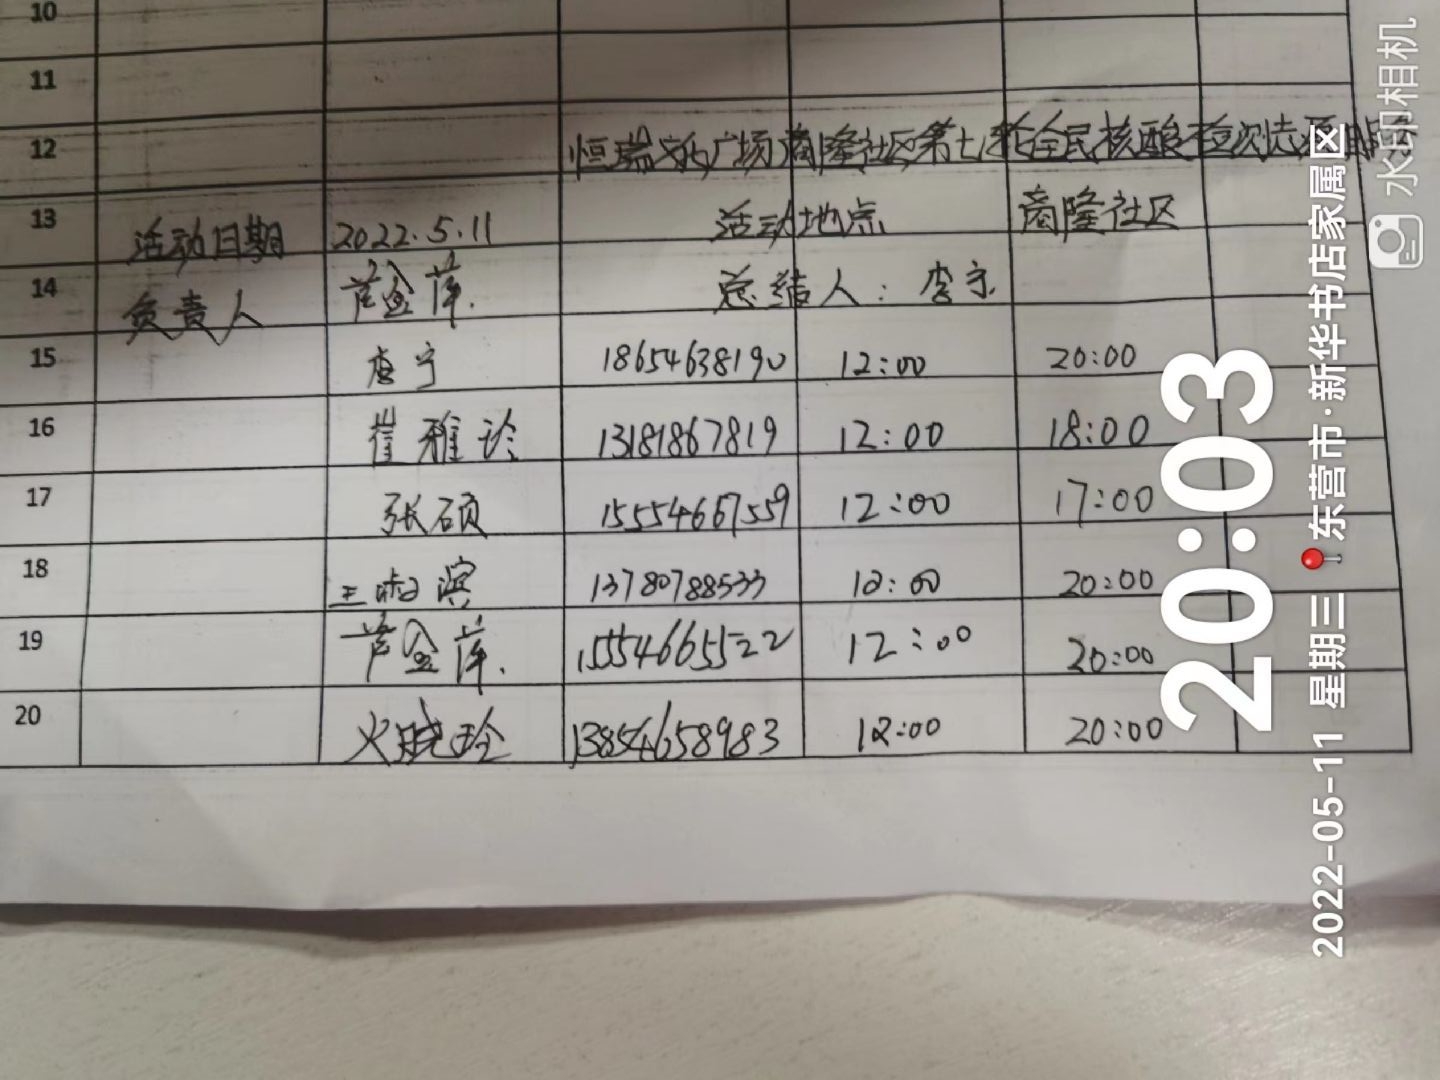 10
11
12 恒瑞文化广场商隆社区第七轮全民核酸检测志愿
13 活动日期 2022.5.11 活动地点 商隆社区
14 负责人 芦金萍. 总结人: 李宁
15 李宁 18654638190 12:00 20:00
16 崔雅玲 13181867819 12:00 18:00
17 张硕 15554667559 12:00 17:00
18 滨 13780788533 12:00 20:00
19 芦金萍. 15554665522 12:00 20:00
20 晓玲 13854658983 12:00 20:00
20:03
2022-05-11 星期三 东营市·新华书店家属区
水印相机